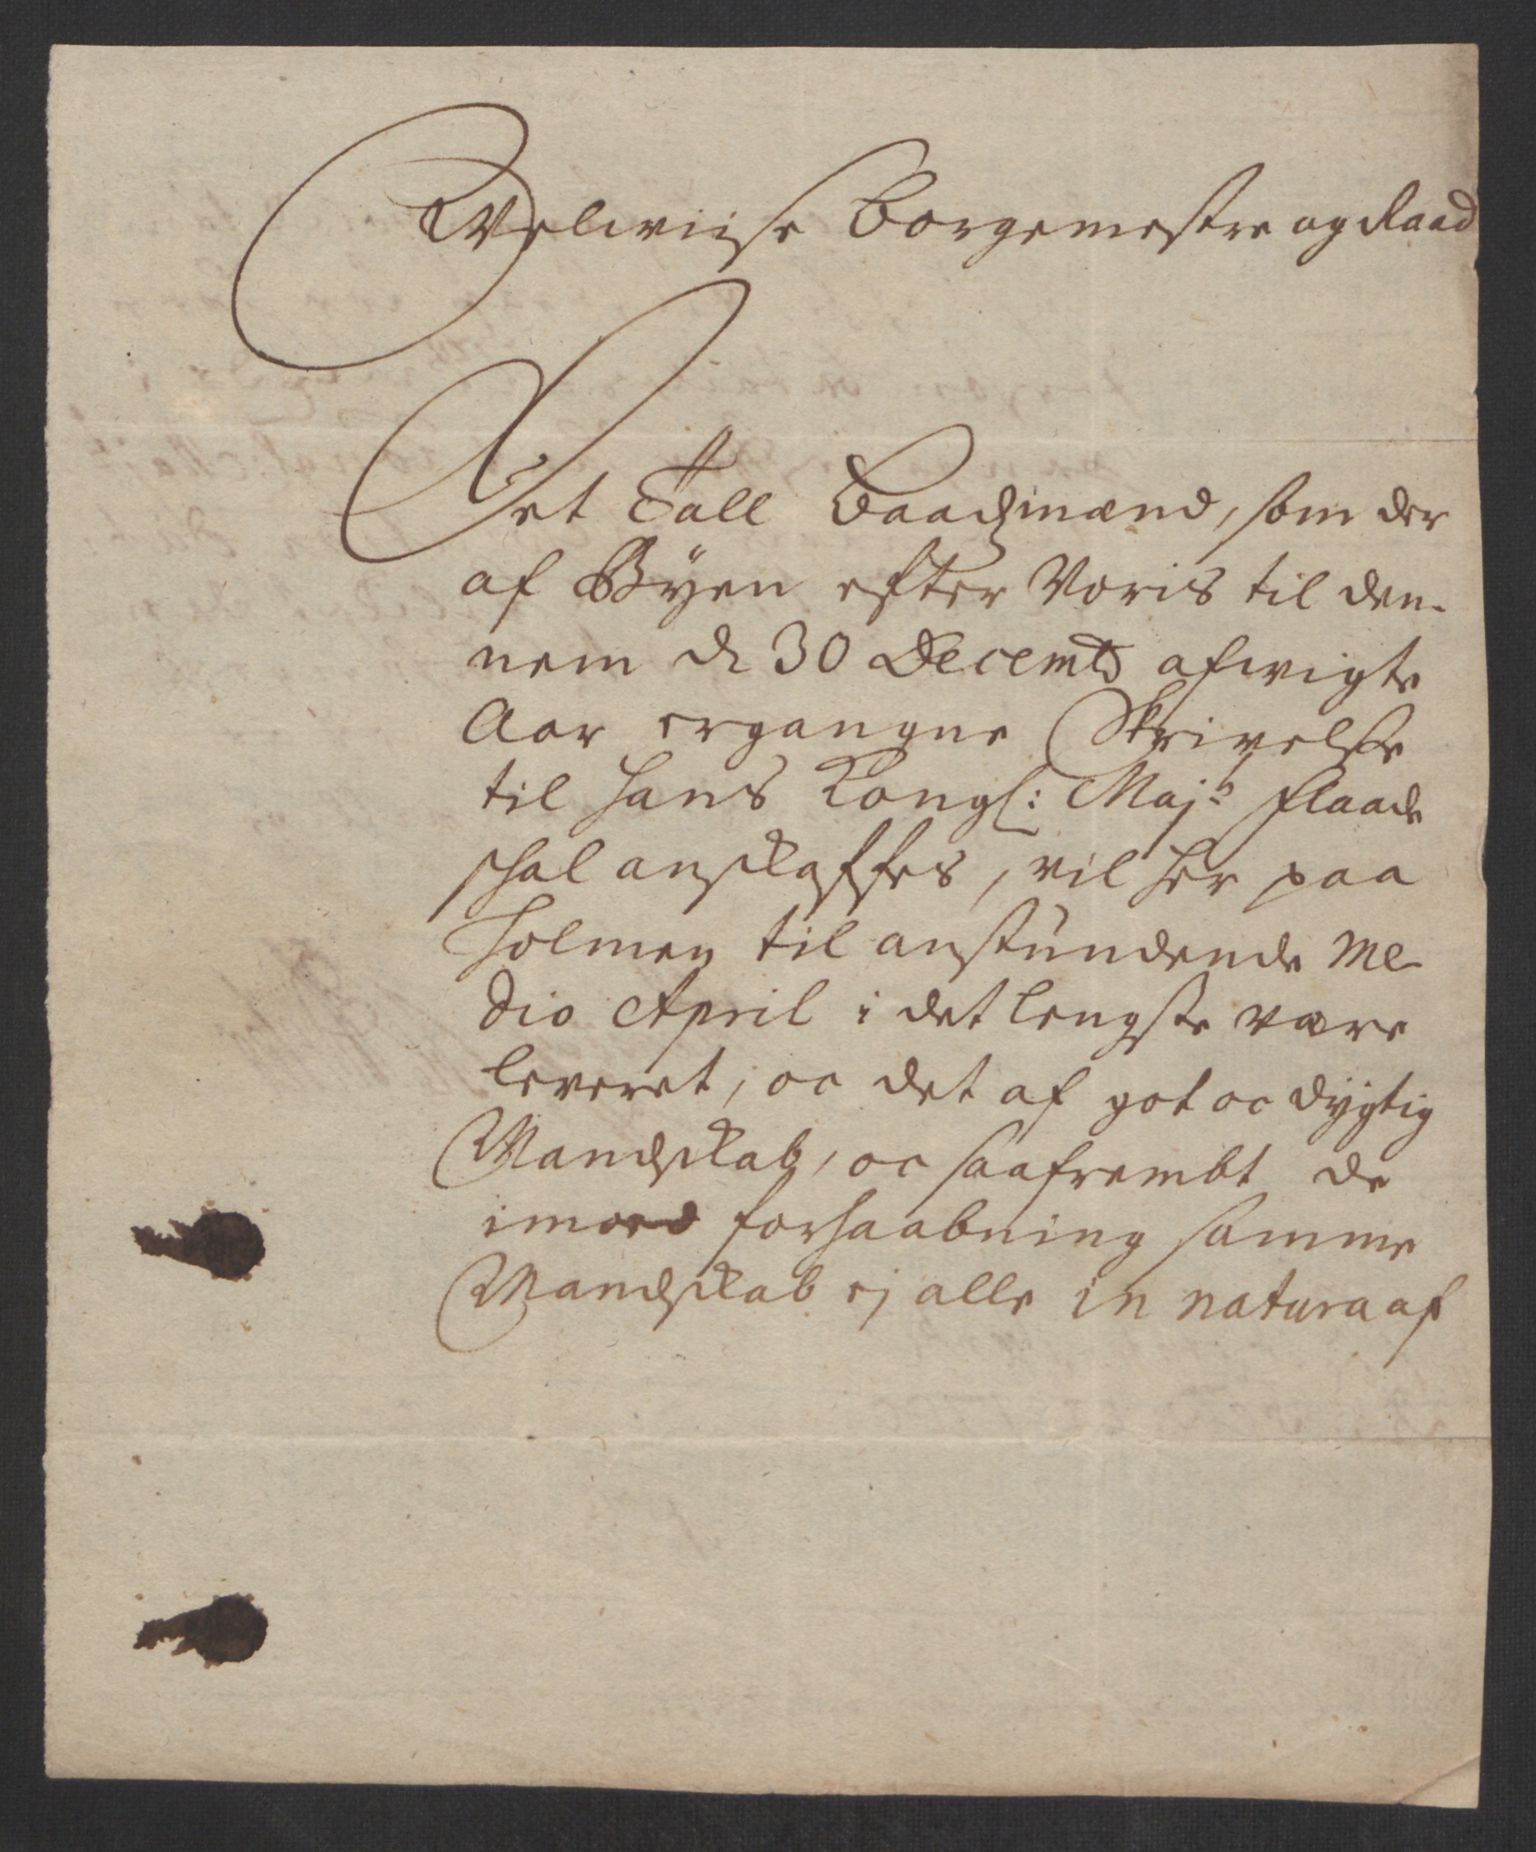 Welwiise Borgemestre og Raad
Det Tall Baadzmænd, som der
af Byen efter Voris til den-
nem d 30 Decemb afwigte
Aar ergangne Skrivelse
til Hans Kongl: Maj:ts Flaade
schal anskaffes, vil her paa
Holmen til anstundende Me-
dio April i det lengste være
leveret, oc det af got oc dygtig
Mandskab, oc saafrembt de
imod forhaabning samme
Mandskab ej alle in natura af